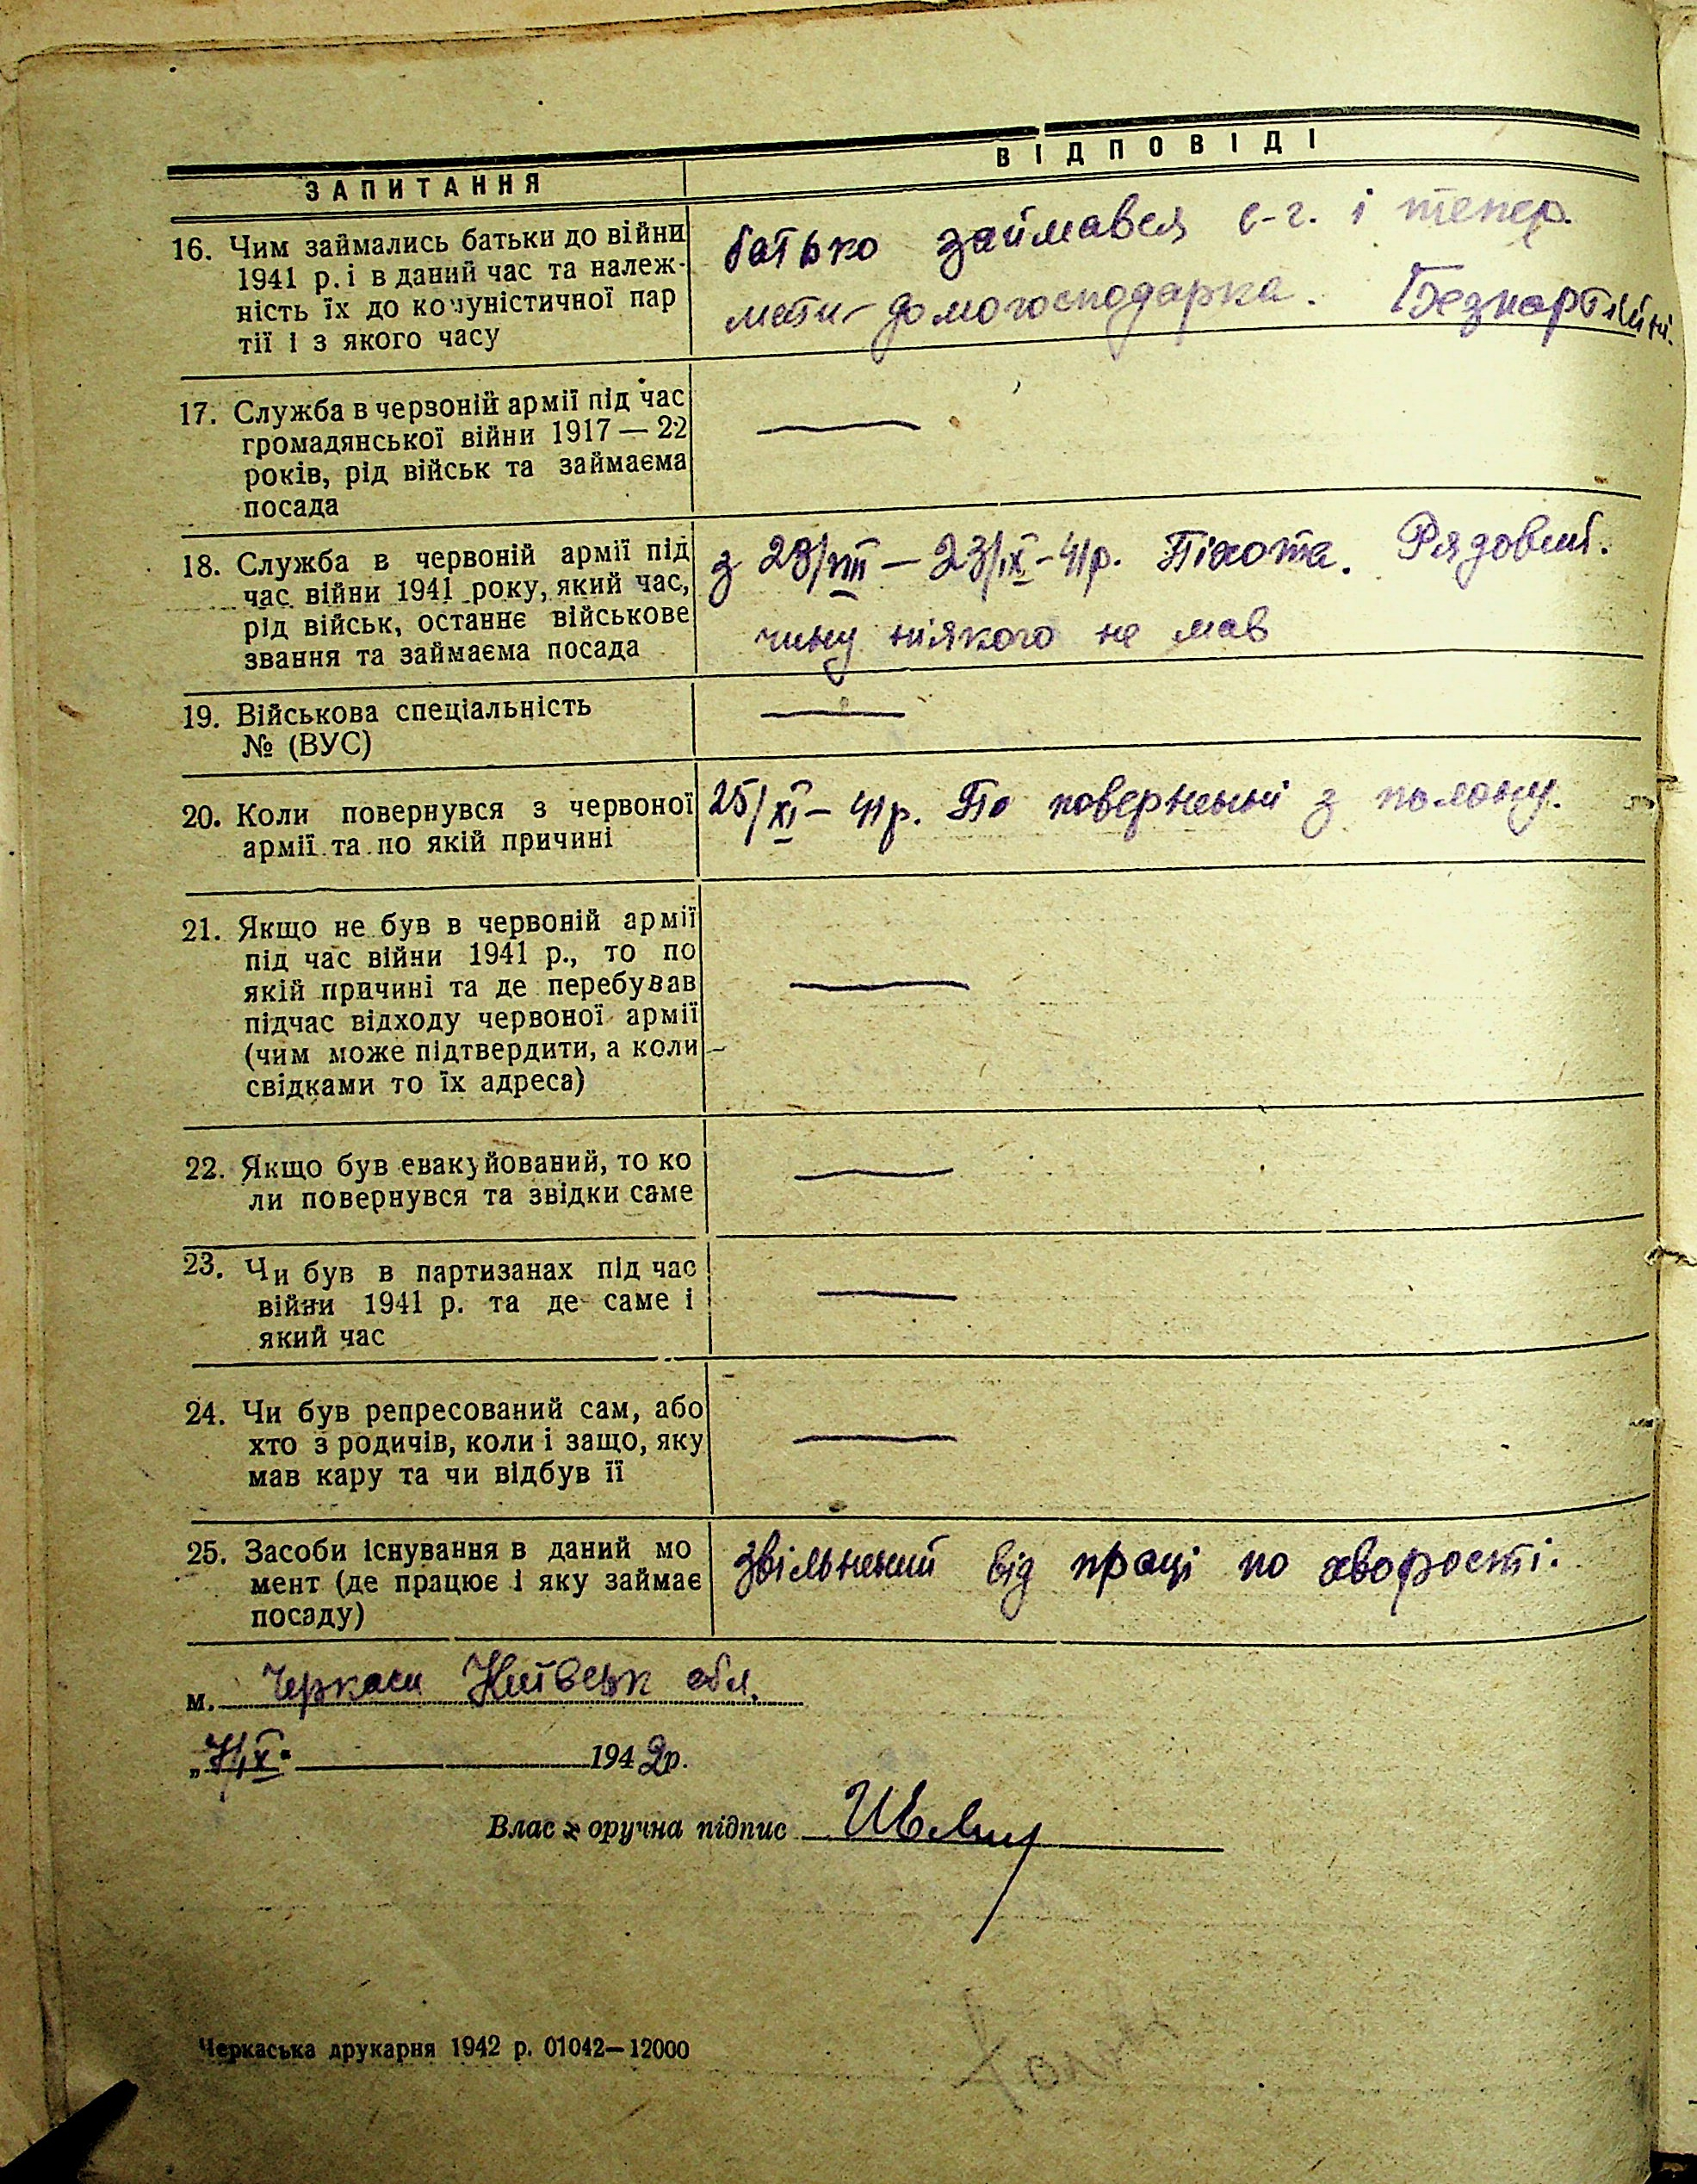 ЗАПИТАННЯ
ВІДПОВІДІ
16. Чим займались батьки до війни
1941 р. і в даний час та належ-
ність їх до комуністичної пар
тії і з якого часу
батько займався с-г. і тепер.
мати - домогосподарка. Безпартійні.
17. Служба в червоній армії під час
громадянської війни 1917 — 22
років, рід військ та займаєма
посада
18. Служба в червоній армії під
час війни 1941 року, який час,
рід військ, останнє військове
звання та займаєма посада
з 23/VIII — 23/IX - 41р. Піхота. Рядовий.
чину ніякого не мав
19. Військова спеціальність
№ (ВУС)
20. Коли повернувся з червоної
армії та по якій причині
25/XI — 41р. По поверненні з полону.
21. Якщо не був в червоній армії
під час війни 1941 р., то по
якій причині та де перебував
підчас відходу червоної армії
(чим може підтвердити, а коли
свідками то їх адреса)
22. Якщо був евакуйований, то ко
ли повернувся та звідки саме
23. Чи був в партизанах під час
війни 1941 р. та де саме і
який час
24. Чи був репресований сам, або
хто з родичів, коли і защо, яку
мав кару та чи відбув її
25. Засоби існування в даний мо
мент (де працює і яку займає
посаду)
звільнений від праці по хворості.
м. Черкаси Київськ обл.
1942р.
Власноручна підпис
Черкаська друкарня 1942 р. 01042—12000